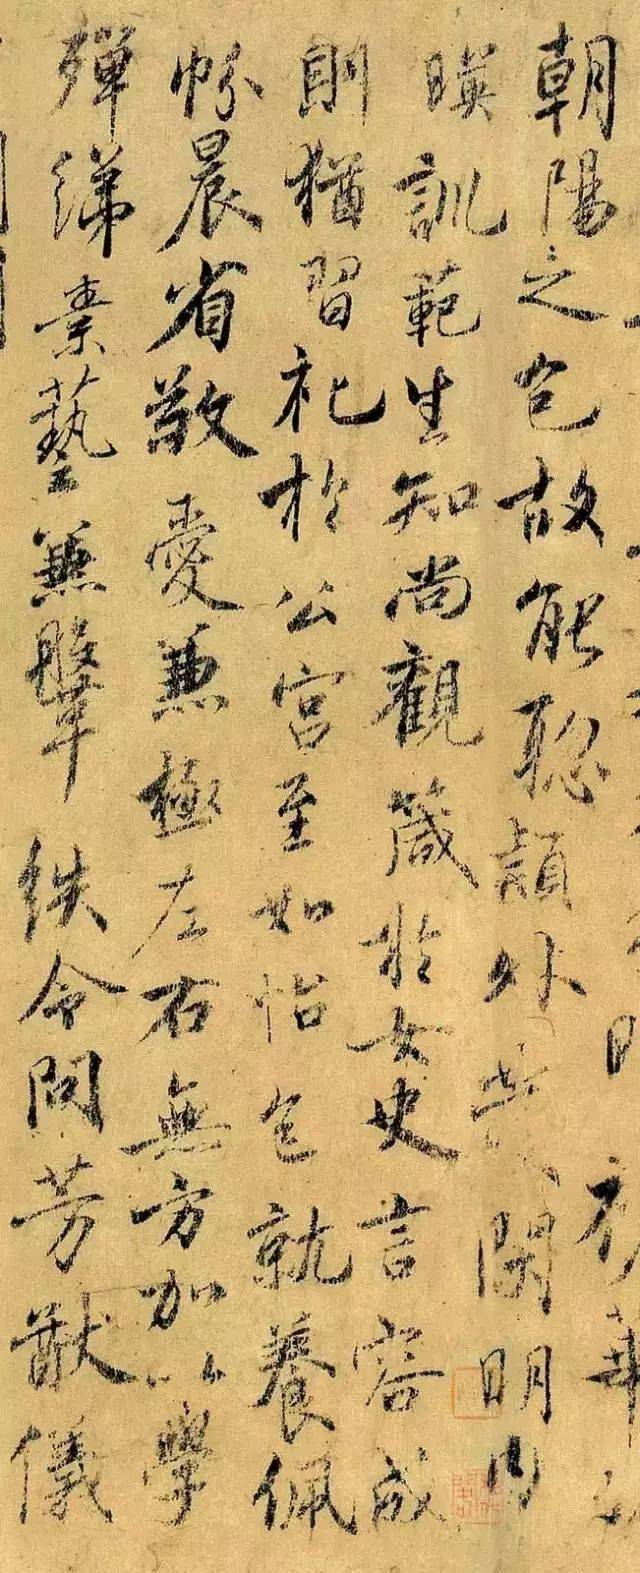 華
朝陽之色故能聡頴外發閑明内
暎訓範生知尚觀箴於女史言容成
則猶習礼於公宮至如怡色就養佩
帉晨省敬愛兼極左右無方加以學
殫綈素藝兼鞶紩令問芳猷儀